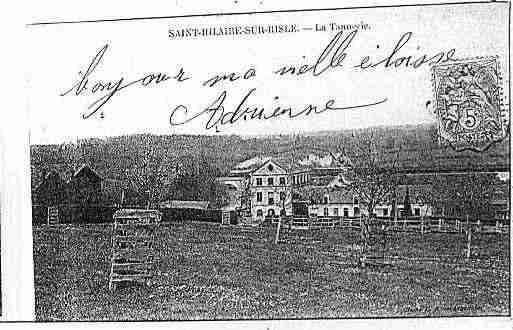 SAINT-HILAIRE-SUR-RISLE. — La Tannerie.
bonjour ma vielle éloisse
Adrienne
5